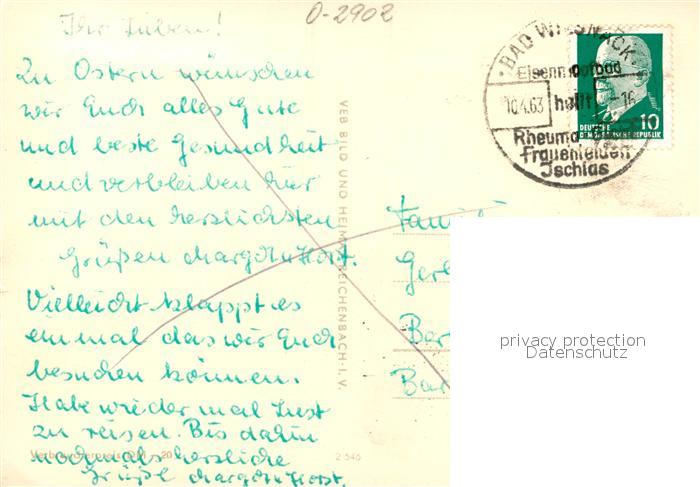 O-2902
Ihr Lieben!
Zu Ostern wünschen
wir Euch alles Gute
und beste Gesundheit
und verbleiben hier
mit den herzlichsten
Grüßen Margot u. Horst.
Vielleicht klappt es
einmal das wir Euch
besuchen können.
Habe wieder mal Lust
zu reisen. Bis dahin
nochmals herzliche
Grüße Margot u. Horst.
VEB BILD UND HEIMAT REICHENBACH I. V.
2 545
BAD WILSNACK
Eisenmoorbad
10.4.63 hilft -16
Rheuma
Frauenleiden
Ischias
10
DEUTSCHE
DEMOKRATISCHE REPUBLIK
Fami
Ger
Bar
Bar
privacy protection
Datenschutz